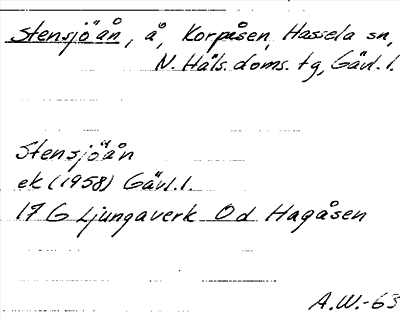 Stensjöån, å, Korpåsen, Hassela sn,
N. Häls. doms. tg, Gävl. l.
Stensjöån
ek (1958) Gävl. l.
17 G Ljungaverk 0 d Hagåsen
A.W.-63